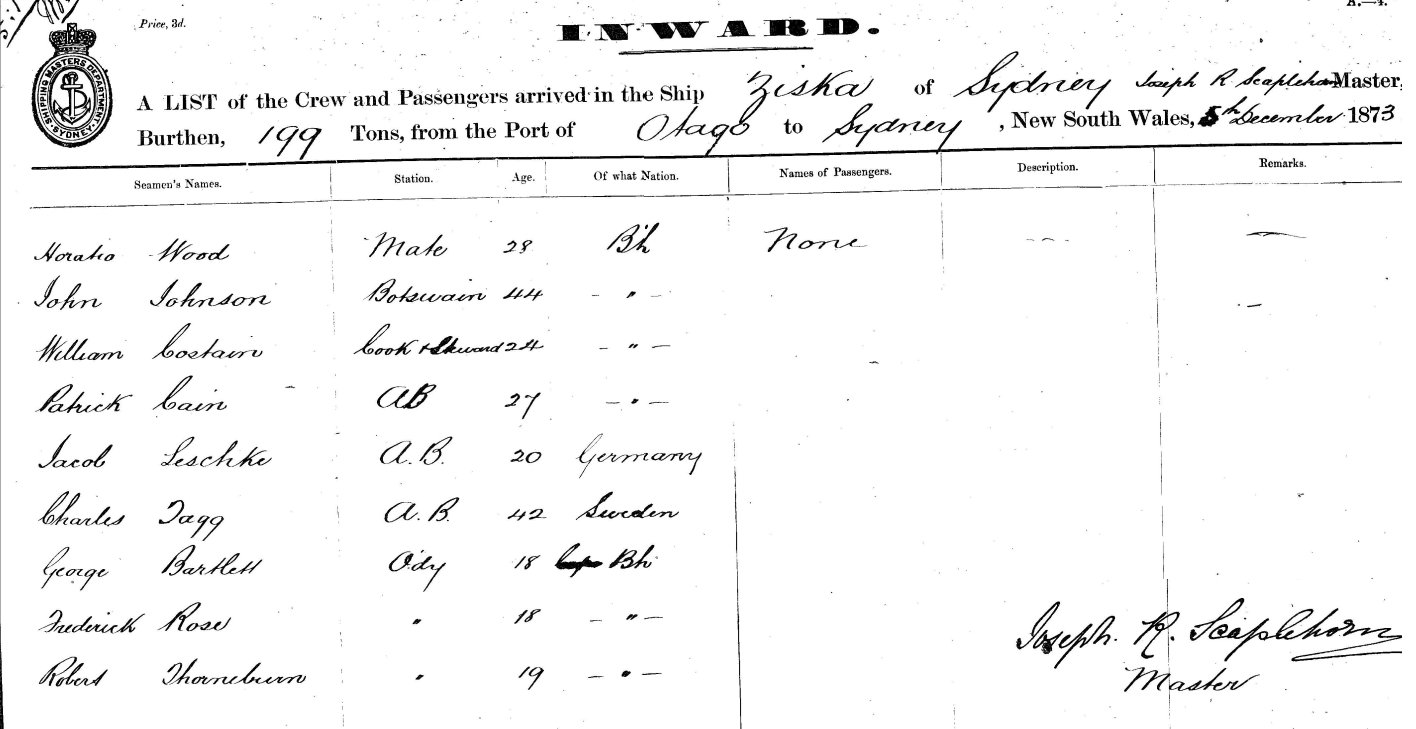 A.—4.
Price, 3d.
INWARD.
SHIPPING MASTERS DEPARTMENT SYDNEY
A LIST of the Crew and Passengers arrived in the Ship Ziska of Sydney Joseph R Scaplehorn Master,
Burthen, 199 Tons, from the Port of Otago to Sydney, New South Wales, 5th December 1873
Seamen's Names. Station. Age. Of what Nation. Names of Passengers. Description. Remarks.
Horatio Wood Mate 28 Bh None --- —
John Johnson Botswain 44 — " — —
William Costain Cook & Steward 24 — " —
Patrick Cain AB 27 — " —
Jacob Leschke A.B. 20 Germany
Charles Tagg A.B. 42 Sweden
George Bartlett Ody 18 Bh
Frederick Rose " 18 — " —
Robert Thorneburn " 19 — " —
Joseph. R. Scaplehorn
Master